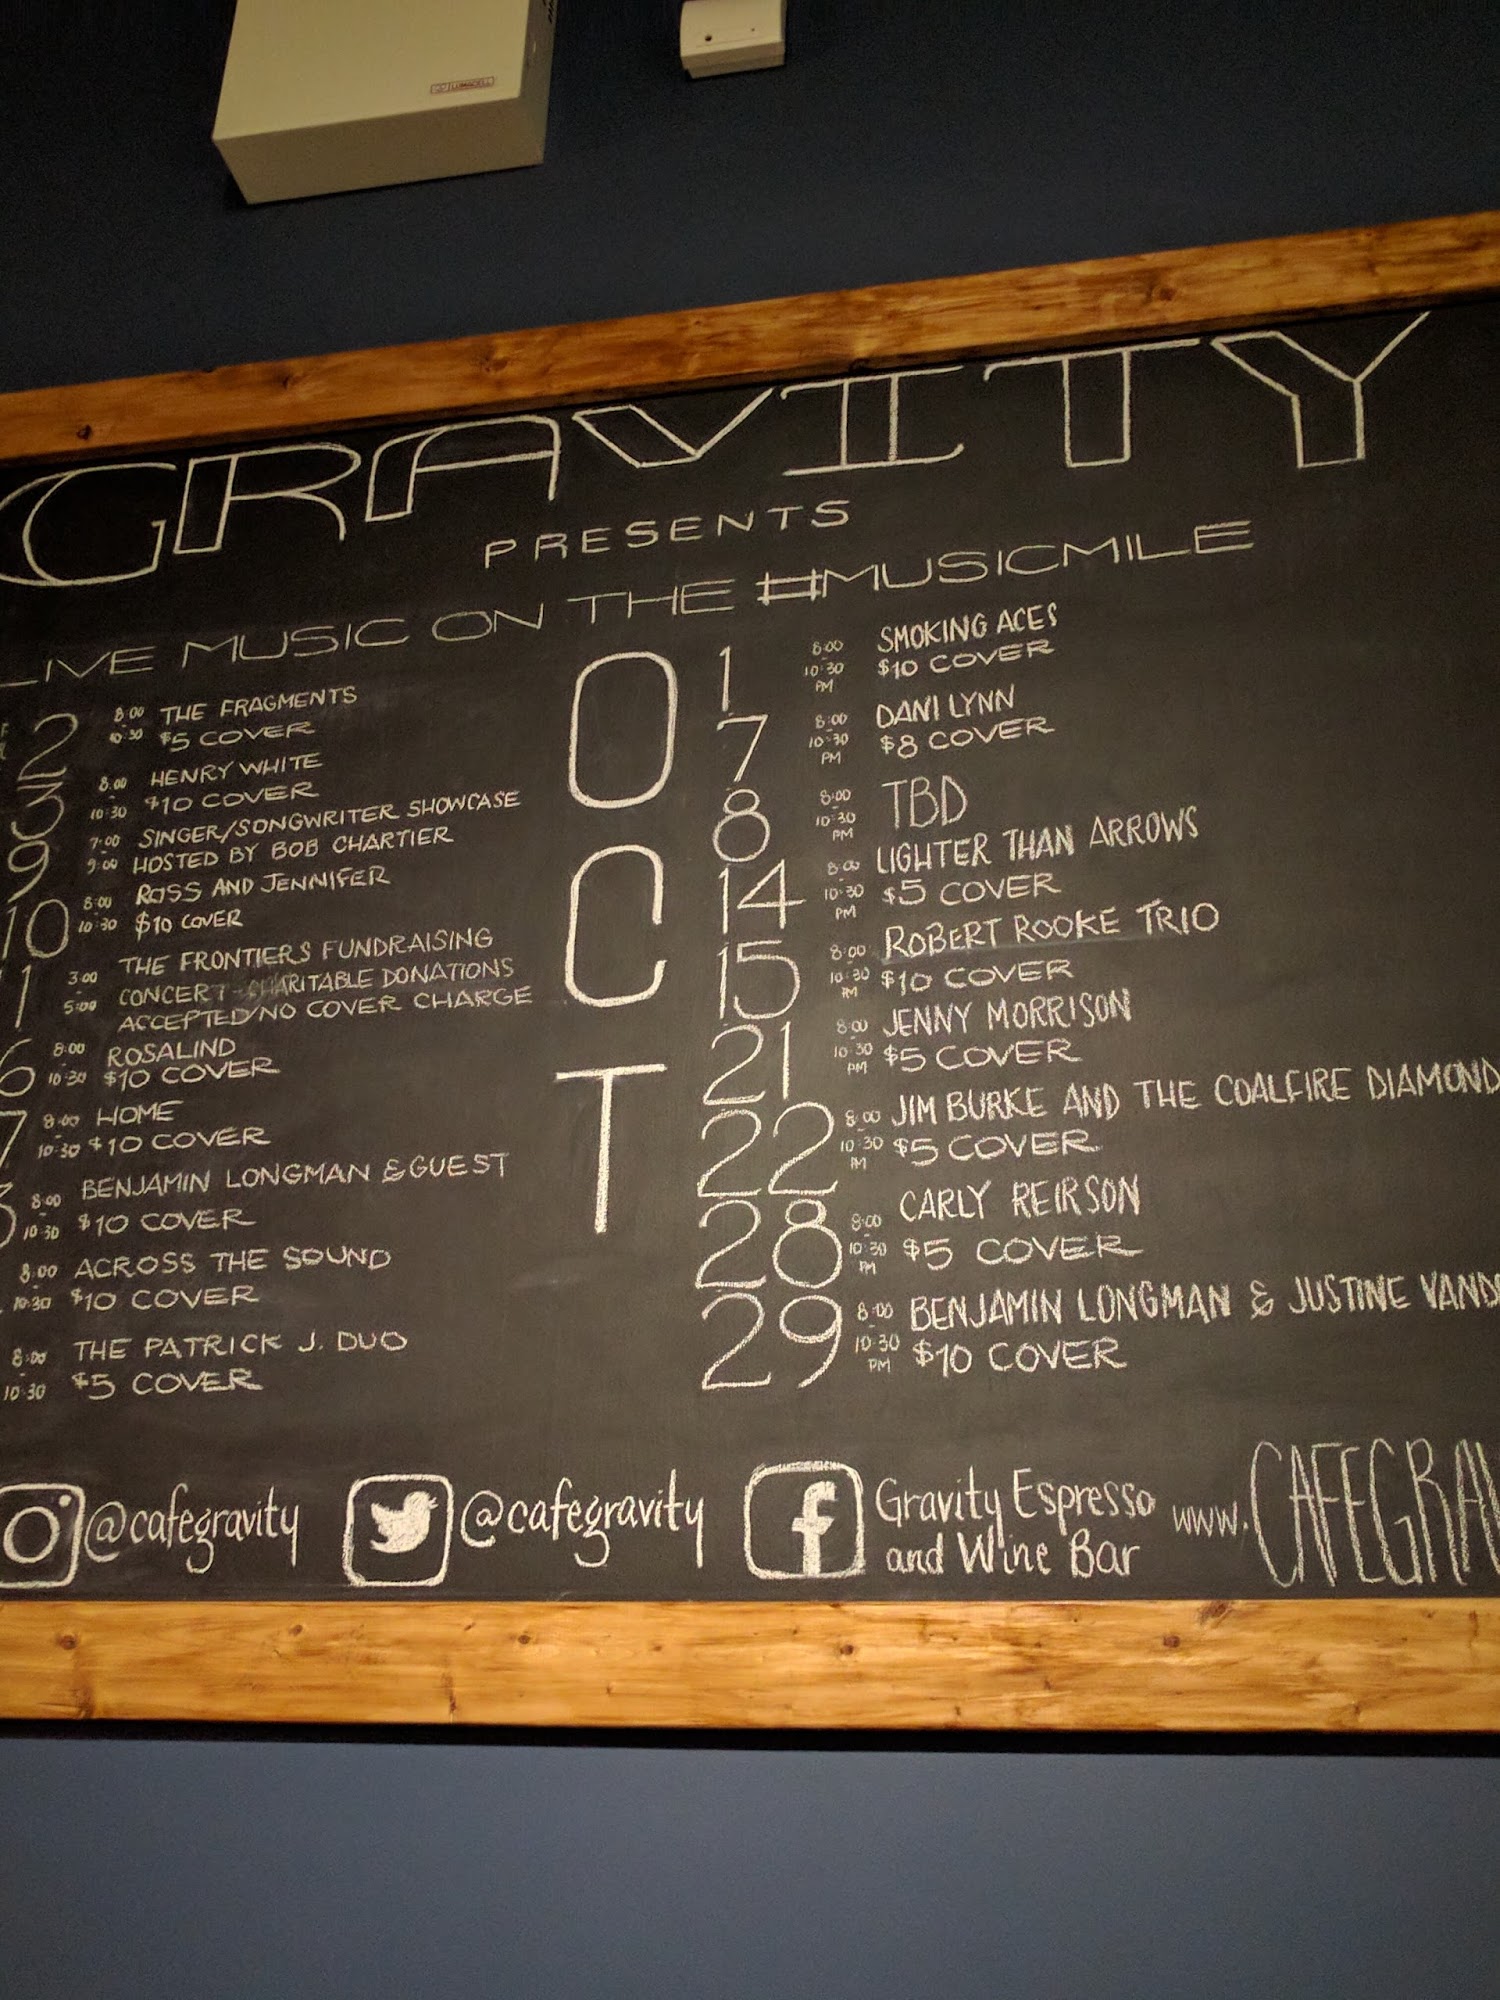 LUMACELL
GRAVITY
PRESENTS
LIVE MUSIC ON THE #MUSICMILE
2 8:00 THE FRAGMENTS
10:30 $5 COVER
3 8:00 HENRY WHITE
10:30 $10 COVER
9 7:00 SINGER/SONGWRITER SHOWCASE
9:00 HOSTED BY BOB CHARTIER
10 8:00 ROSS AND JENNIFER
10:30 $10 COVER
3:00 THE FRONTIERS FUNDRAISING
5:00 CONCERT - CHARITABLE DONATIONS
ACCEPTED/NO COVER CHARGE
8:00 ROSALIND
10:30 $10 COVER
8:00 HOME
10:30 $10 COVER
8:00 BENJAMIN LONGMAN & GUEST
10:30 $10 COVER
8:00 ACROSS THE SOUND
10:30 $10 COVER
8:00 THE PATRICK J. DUO
10:30 $5 COVER
OCT
1 8:00 SMOKING ACES
10:30 PM $10 COVER
7 8:00 DANI LYNN
10:30 PM $8 COVER
8 8:00 TBD
10:30 PM
14 8:00 LIGHTER THAN ARROWS
10:30 PM $5 COVER
15 8:00 ROBERT ROOKE TRIO
10:30 PM $10 COVER
21 8:00 JENNY MORRISON
10:30 PM $5 COVER
22 8:00 JIM BURKE AND THE COALFIRE DIAMOND
10:30 PM $5 COVER
28 8:00 CARLY REIRSON
10:30 PM $5 COVER
29 8:00 BENJAMIN LONGMAN & JUSTINE VAND
10:30 PM $10 COVER
@cafegravity
@cafegravity
f Gravity Espresso
and Wine Bar
www.CAFEGRAV